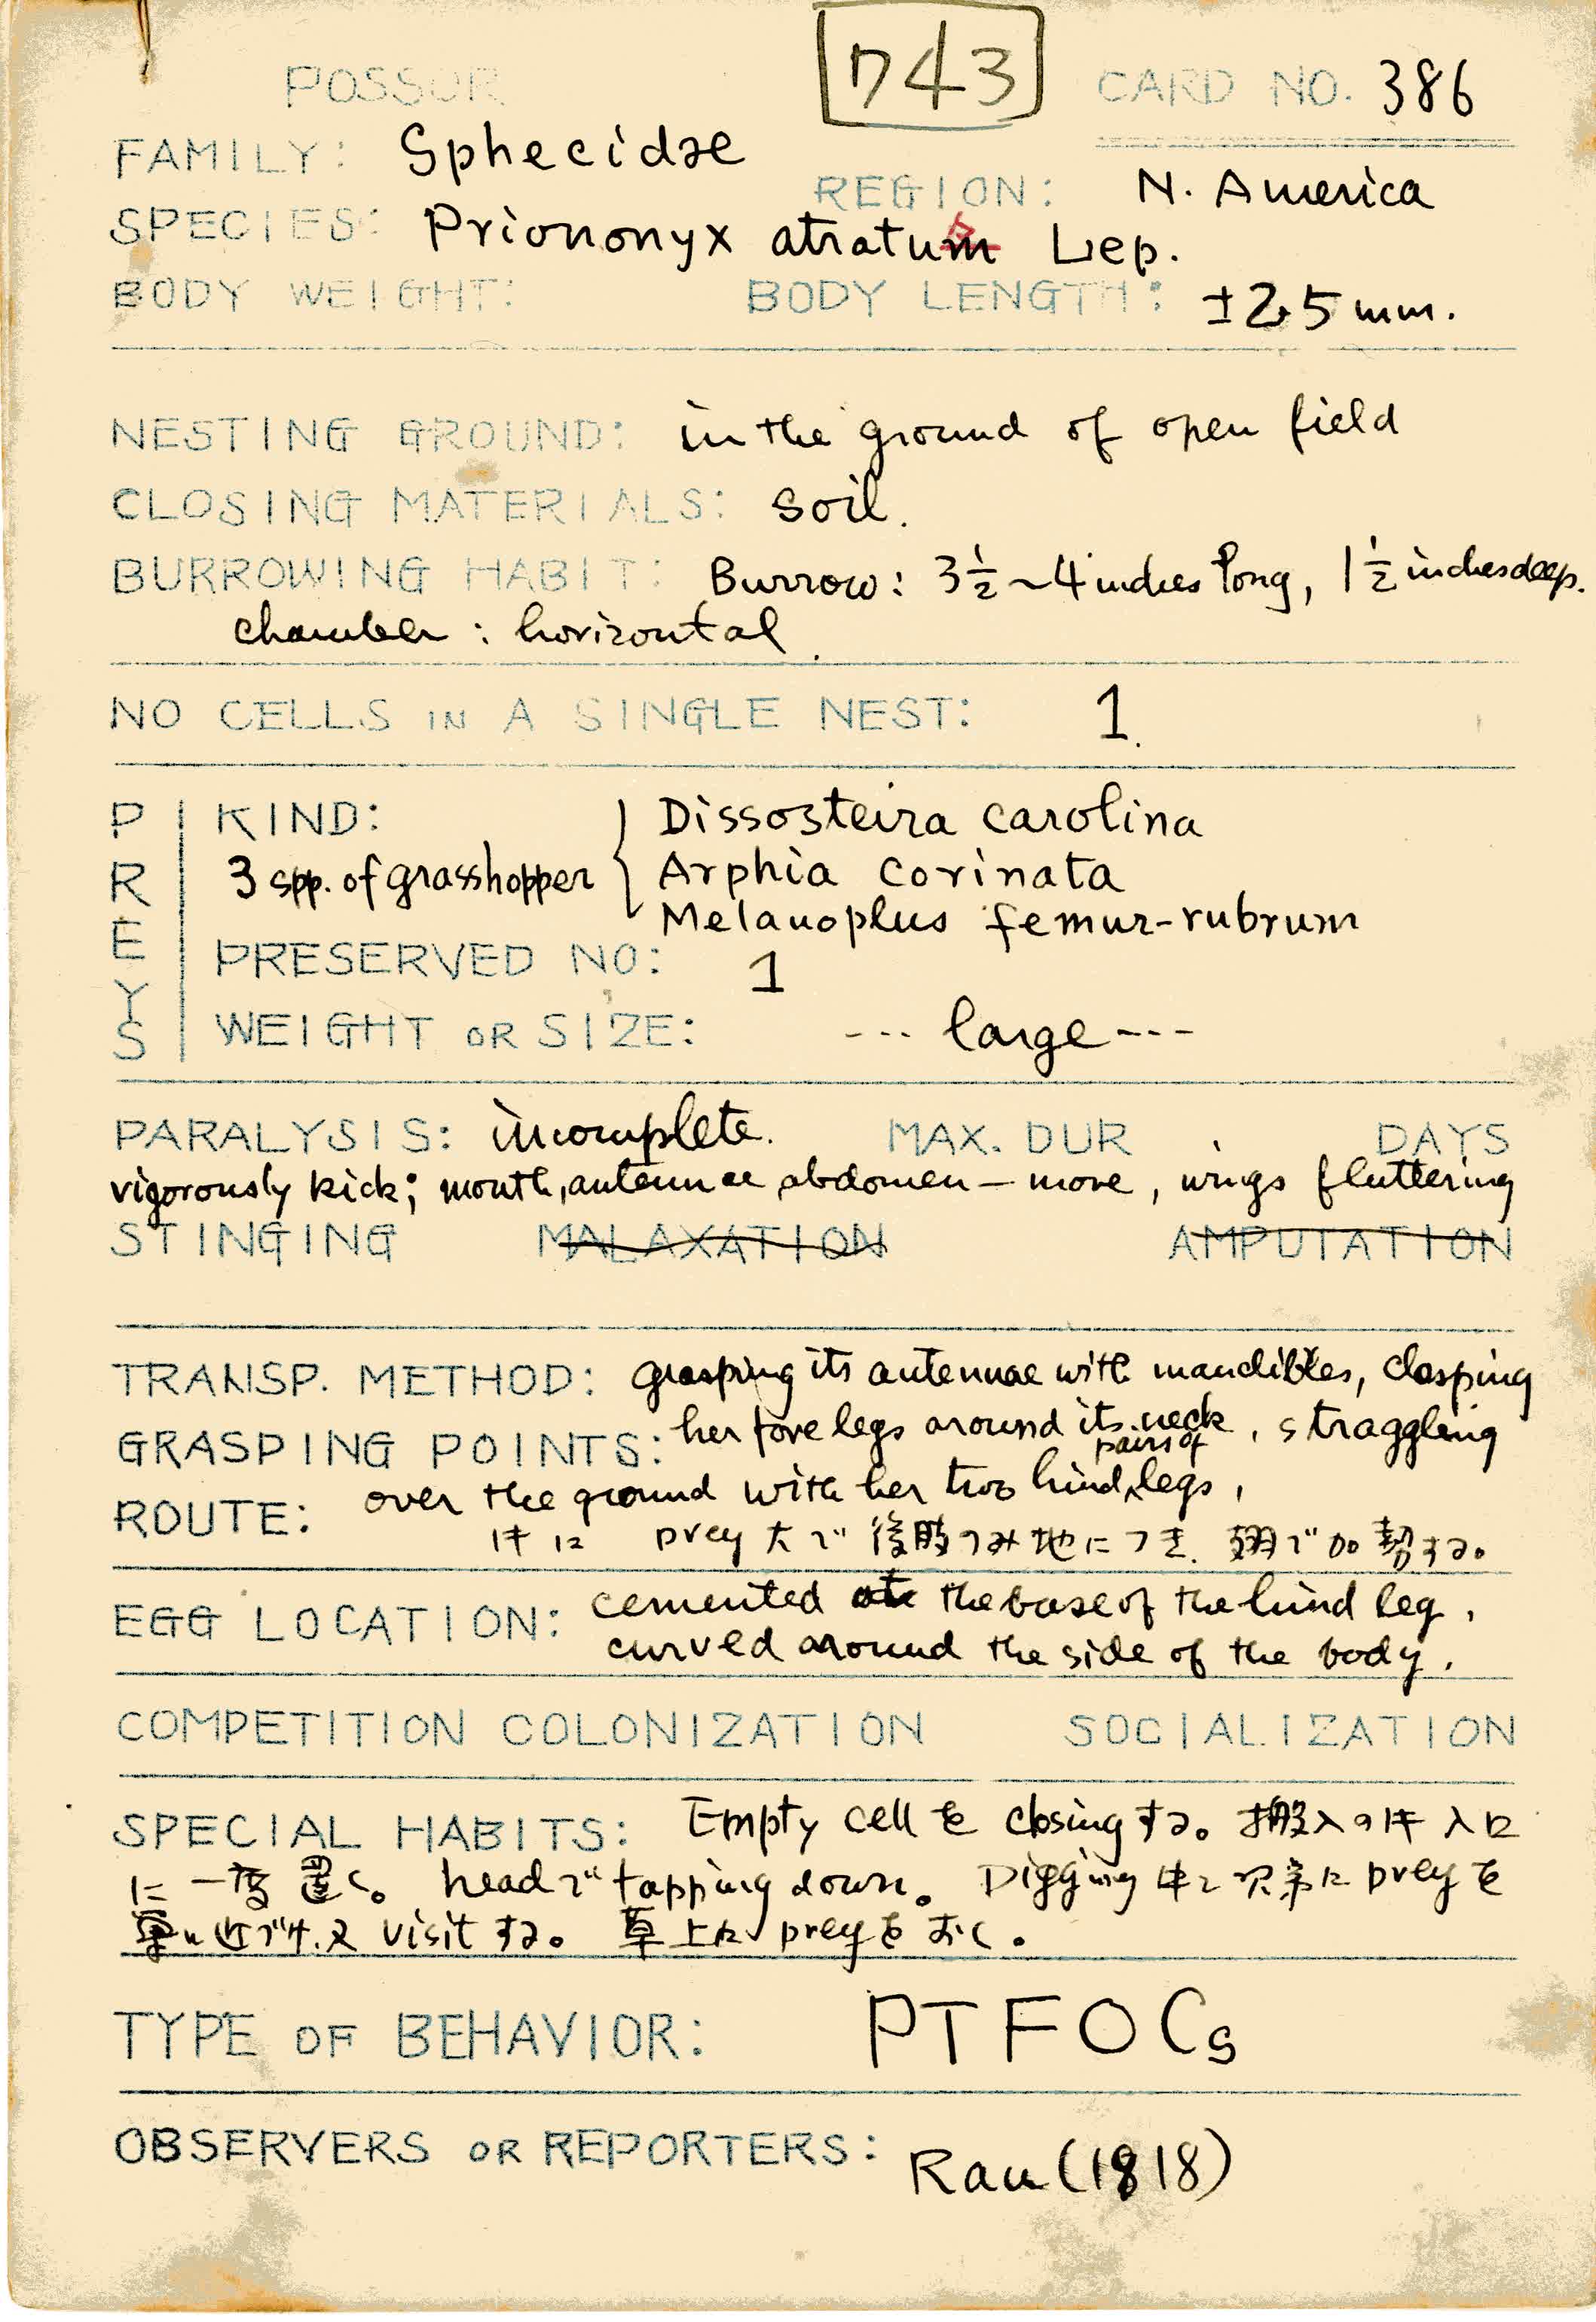 POSSOR
743
CARD NO. 386
FAMILY: Sphecidae
REGION: N. America
SPECIES: Priononyx atratum Lep.
BODY WEIGHT:
BODY LENGTH: ±25 mm.
NESTING GROUND: in the ground of open field
CLOSING MATERIALS: soil.
BURROWING HABIT: Burrow: 3½~4 inches long, 1½ inches deep.
chamber: horizontal.
NO CELLS IN A SINGLE NEST: 1.
PREYS
KIND: Dissosteira carolina
3 spp. of grasshopper { Arphia corinata
Melanoplus femur-rubrum
PRESERVED NO: 1
WEIGHT OR SIZE: --- large ---
PARALYSIS: incomplete. MAX. DUR DAYS
vigorously kick; mouth, antennae, abdomen - move, wings fluttering
STINGING MALAXATION AMPUTATION
TRANSP. METHOD: grasping its antennae with mandibles, clasping
GRASPING POINTS: her fore legs around its neck, straggling
ROUTE: over the ground with her two hind pairs of legs,
prey 大で 後肢のみ地につき、翅で
EGG LOCATION: cemented at the base of the hind leg,
curved around the side of the body.
COMPETITION COLONIZATION SOCIALIZATION
SPECIAL HABITS: Empty cell を closing する。搬入の時 入口
に一度置く。headで tapping down。Digging 中 次第に prey を
巣に近づけ、又 visit する。草上に prey をおく。
TYPE OF BEHAVIOR: PTFOCs
OBSERVERS OR REPORTERS: Rau (1918)